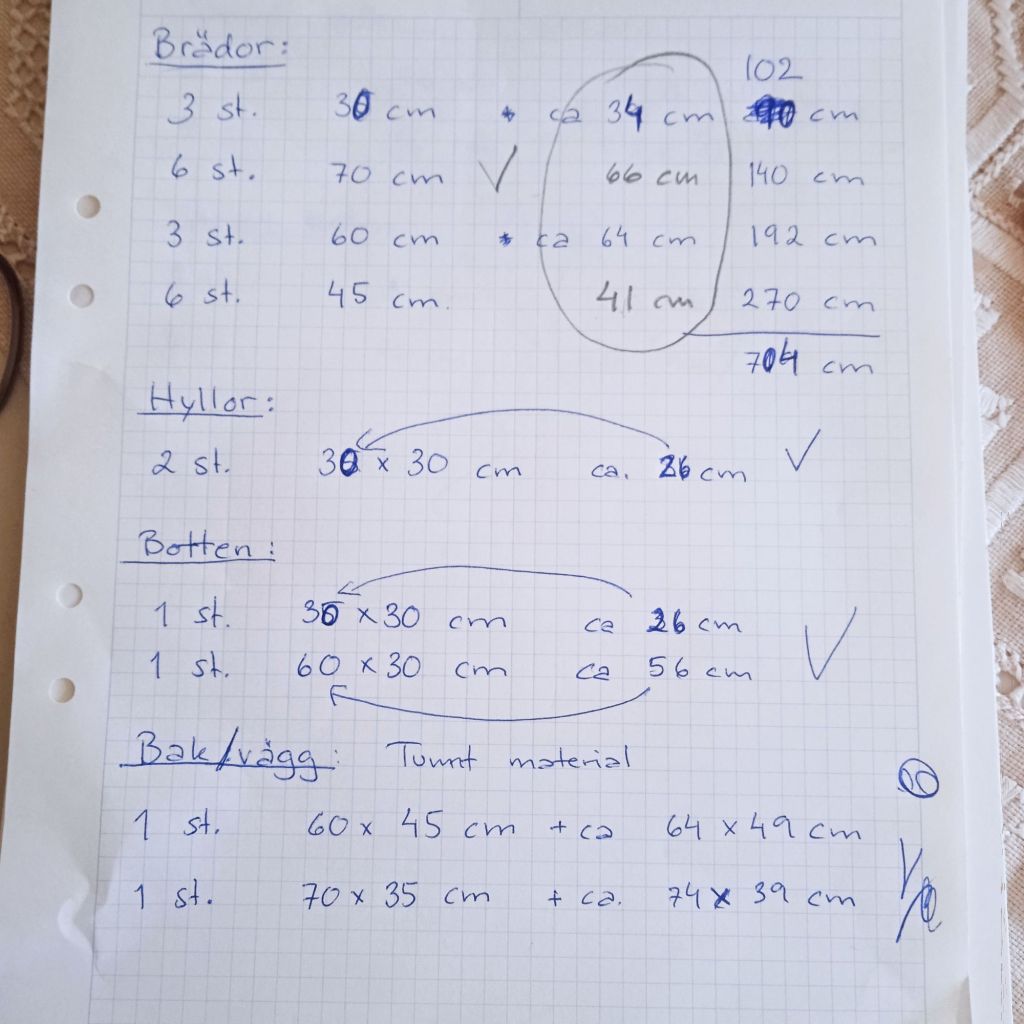 Brädor:
102
3 st. 30 cm * ca 34 cm cm
6 st. 70 cm ✓ 66 cm 140 cm
3 st. 60 cm * ca 64 cm 192 cm
6 st. 45 cm. 41 cm 270 cm
704 cm
Hyllor:
2 st. 30 x 30 cm ca. 26 cm ✓
Botten:
1 st. 30 x 30 cm ca 26 cm ✓
1 st. 60 x 30 cm ca 56 cm
Bak/vägg: Tunnt material
1 st. 60 x 45 cm + ca 64 x 49 cm
1 st. 70 x 35 cm + ca. 74 x 39 cm